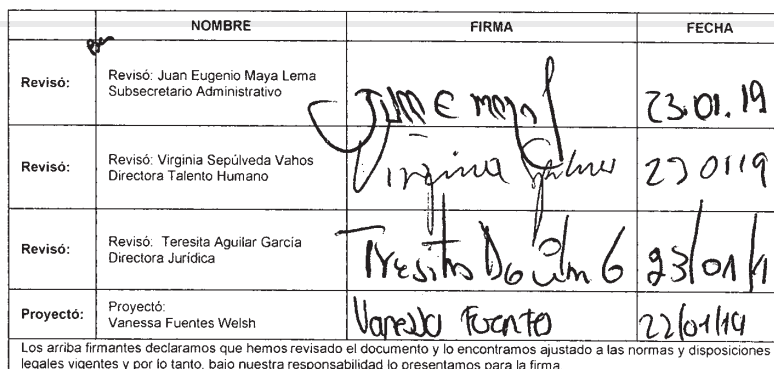 NOMBRE FIRMA FECHA
Revisó: Revisó: Juan Eugenio Maya Lema
Subsecretario Administrativo 23.01.19
Revisó: Revisó: Virginia Sepúlveda Vahos
Directora Talento Humano Virginia 230119
Revisó: Revisó: Teresita Aguilar García
Directora Jurídica 23/01/1
Proyectó: Proyectó:
Vanessa Fuentes Welsh Vanessa Fuentes 22/01/19
Los arriba firmantes declaramos que hemos revisado el documento y lo encontramos ajustado a las normas y disposiciones
legales vigentes y por lo tanto, bajo nuestra responsabilidad lo presentamos para la firma.